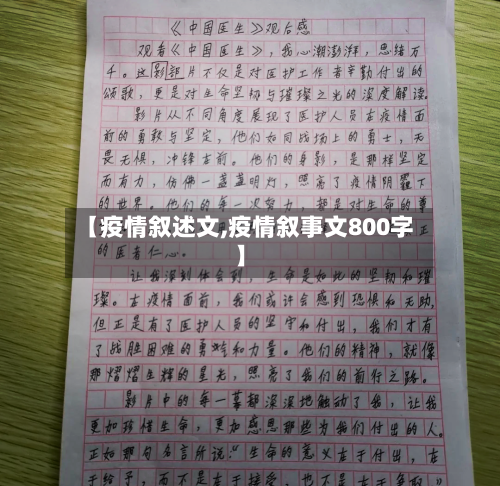 《中国医生》观后感
观看《中国医生》,我心潮澎湃,思绪万
千。这影部片不仅是对医护工作者辛勤付出的
颂歌,更是对生命坚韧与璀璨之光的深度解读。
影片从不同角度展现了医护人员在疫情面
前的勇敢与坚定,他们如同战场上的勇士,无
畏无惧,冲锋在前。他们的身影,是那样坚定
而有力,仿佛一盏盏明灯,照亮了疫情阴霾下
的世界。他们的每一次努力,都是对生命的尊
【疫情叙述文,疫情叙事文800字
】
的医者仁心。
让我深刻体会到,生命是如此的坚韧和璀
璨。在疫情面前,我们或许会感到恐惧和无助,
但正是有了医护人员的坚守和付出,我们才有
了战胜困难的勇气和力量。他们的精神,就像
那熠熠生辉的星光,照亮了我们的前行之路。
影片中的每一幕都深深地触动了我,让我
更加珍惜生命,更加感恩那些为我们付出的人。
正如那句名言所说:“生命的意义在于付出,在
于给予,而不是在于接受,也不是在于争取”